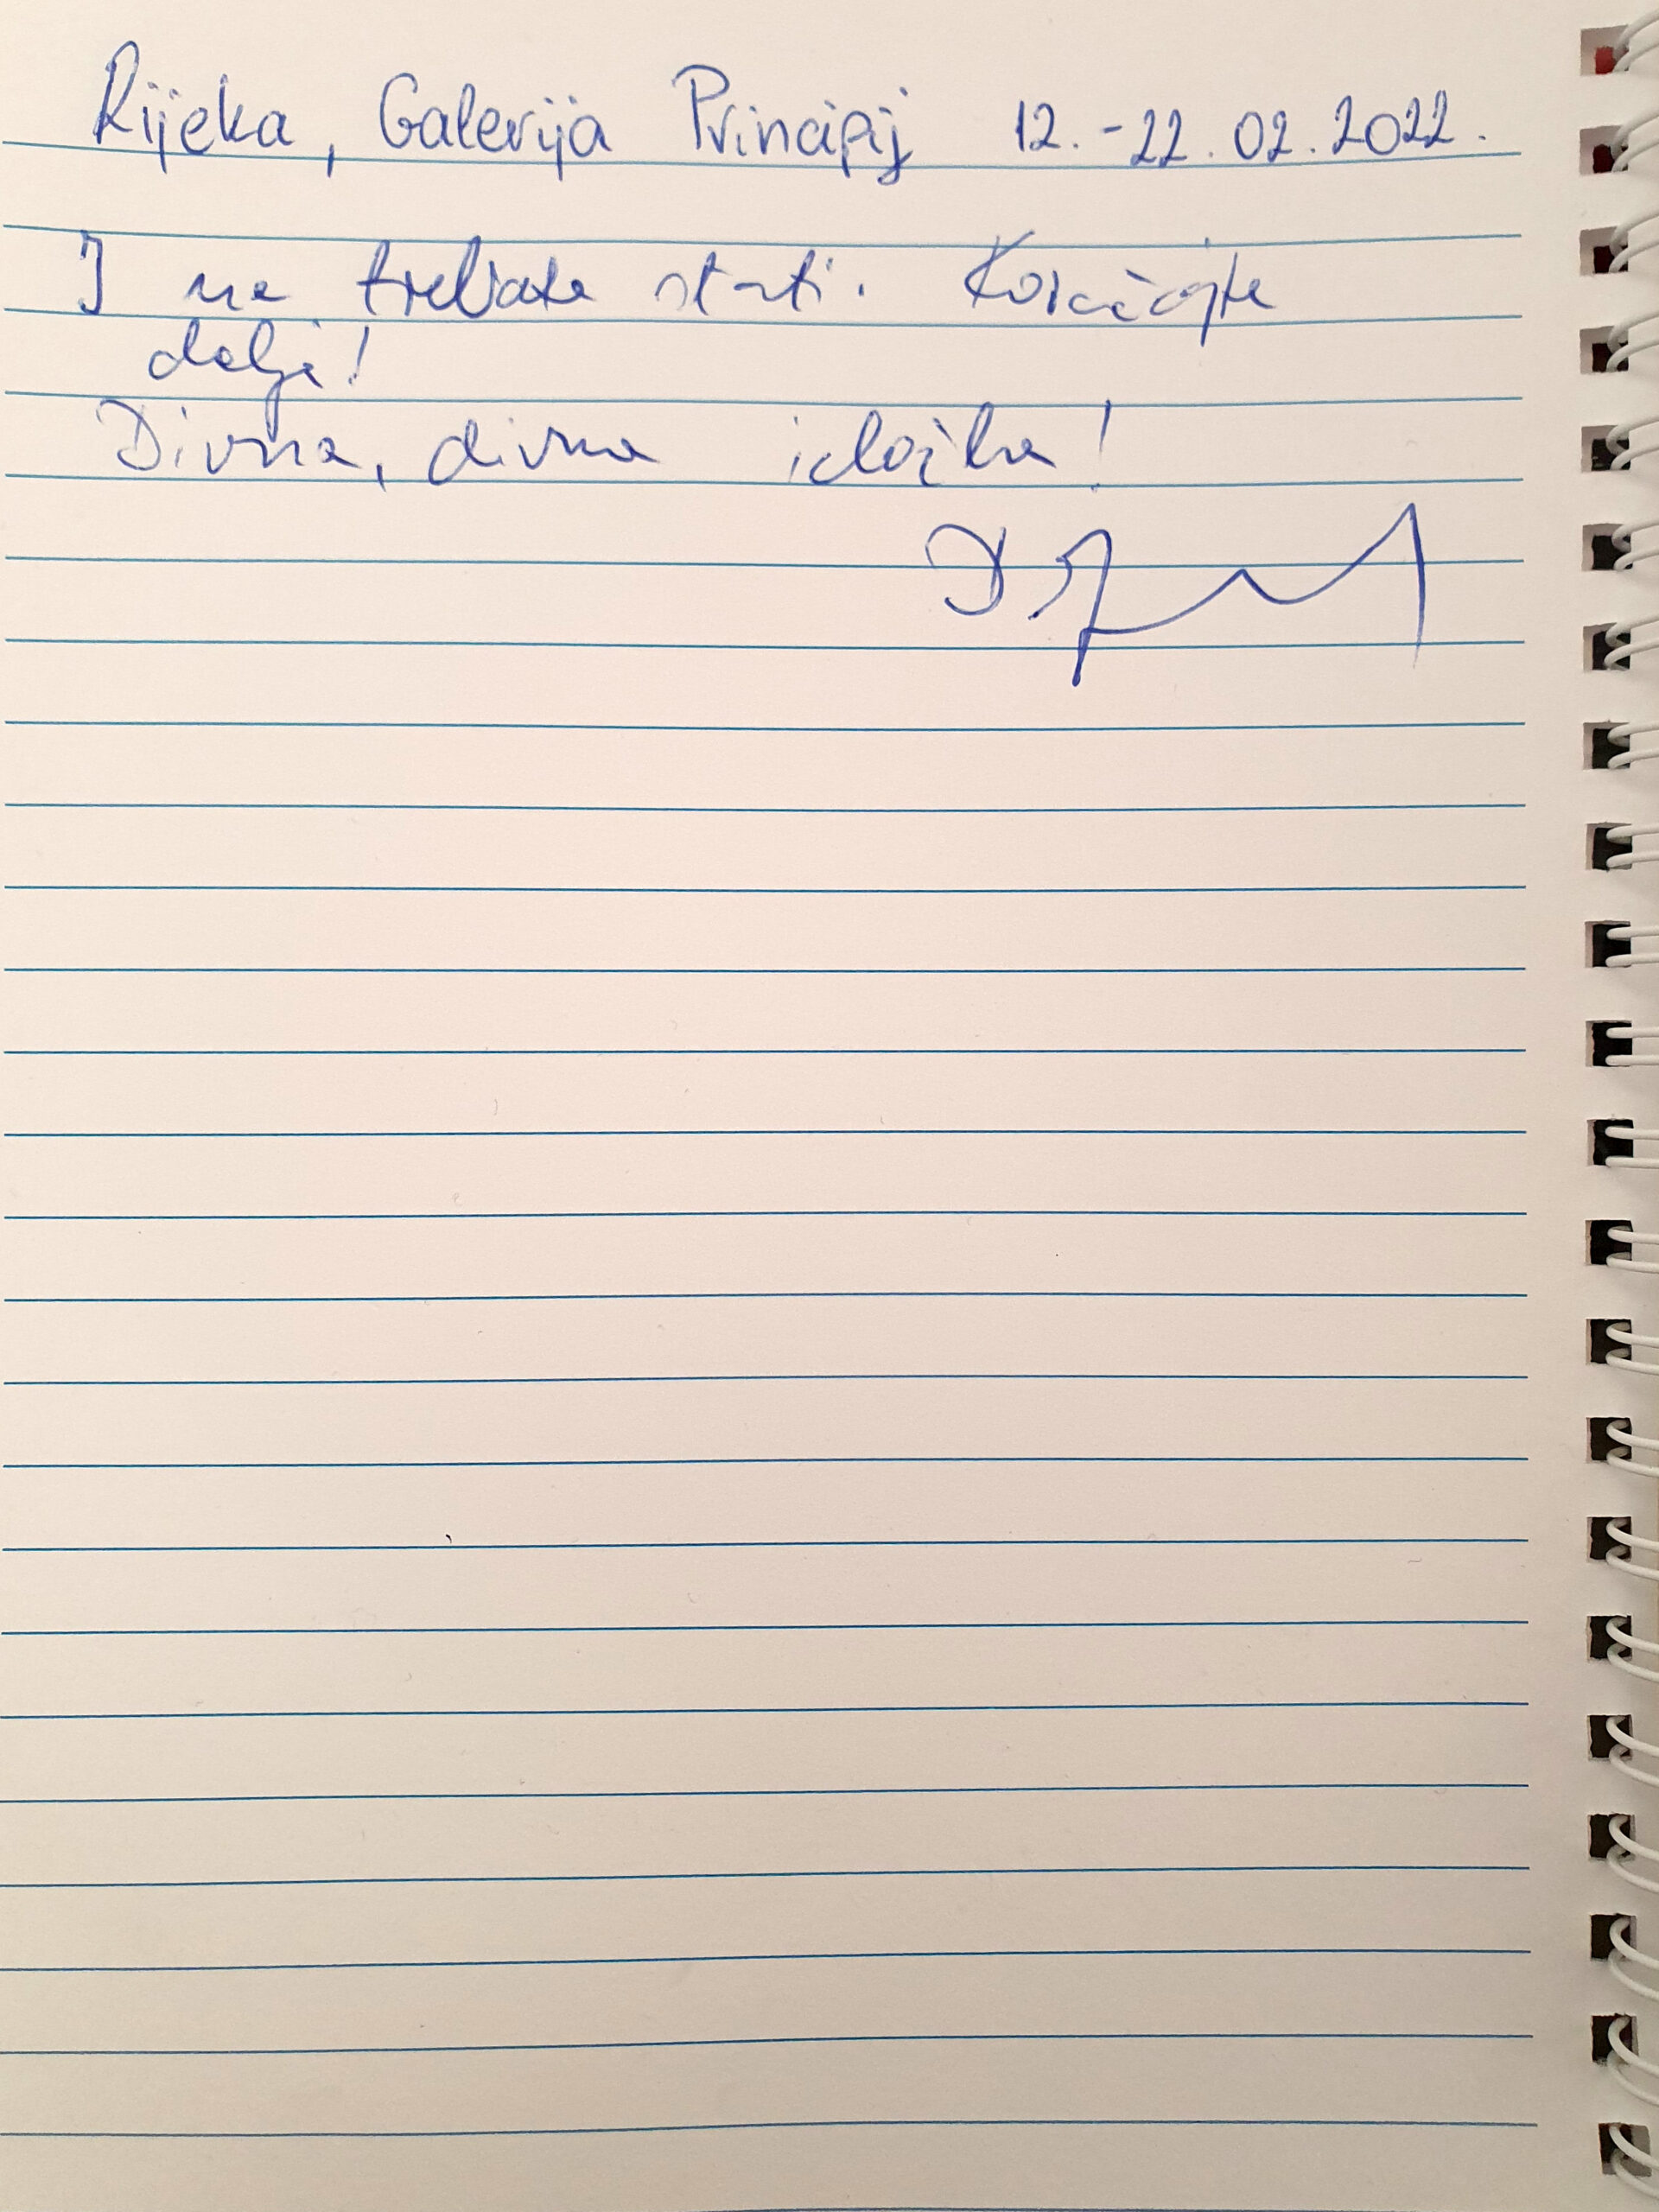 Rijeka, Galerija Principij 12.-22.02.2022.
I ne trebate stati. Koračajte
dalje!
Divna, divna izložba!